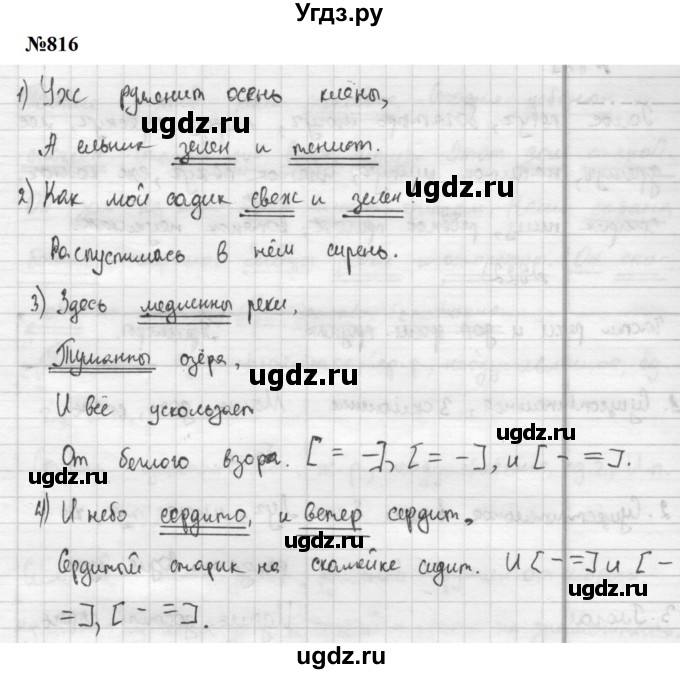 Угдз.ру
№816
1) Уж румянит осень клёны,
А ельник зелен и тенист.
2) Как мой садик свеж и зелен!
Распустилась в нём сирень.
3) Здесь медленны реки,
Туманны озёра,
И всё ускользает
От беглого взора. [= –], [= –], и [– =].
4) И небо сердито, и ветер сердит,
Сердитый старик на скамейке сидит. И [– =] и [–
=], [– =].
ugdz.ru
ugdz.ru
ugdz.ru
ugdz.ru
ugdz.ru
ugdz.ru
ugdz.ru
ugdz.ru
ugdz.ru
ugdz.ru